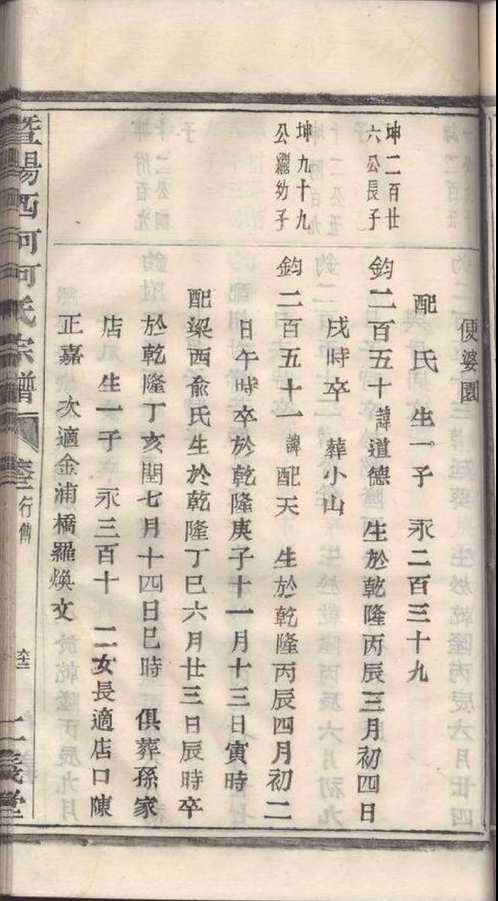 便婆園
配 氏 生一子 永二百三十九
坤二百廿
六公長子
鈞二百五十諱道德 生於乾隆丙辰三月初四日
戌時卒 葬小山
坤九十九
公繼幼子
鈞二百五十一諱配天 生於乾隆丙辰四月初二
日午時卒於乾隆庚子十一月十三日寅時
配梁西俞氏生於乾隆丁巳六月廿三日辰時卒
於乾隆丁亥閏七月十四日巳時 俱葬孫家
店 生一子 永三百十 二女長適店口陳
正嘉 次適金浦橋羅煥文
暨陽西河何氏宗譜 行傳